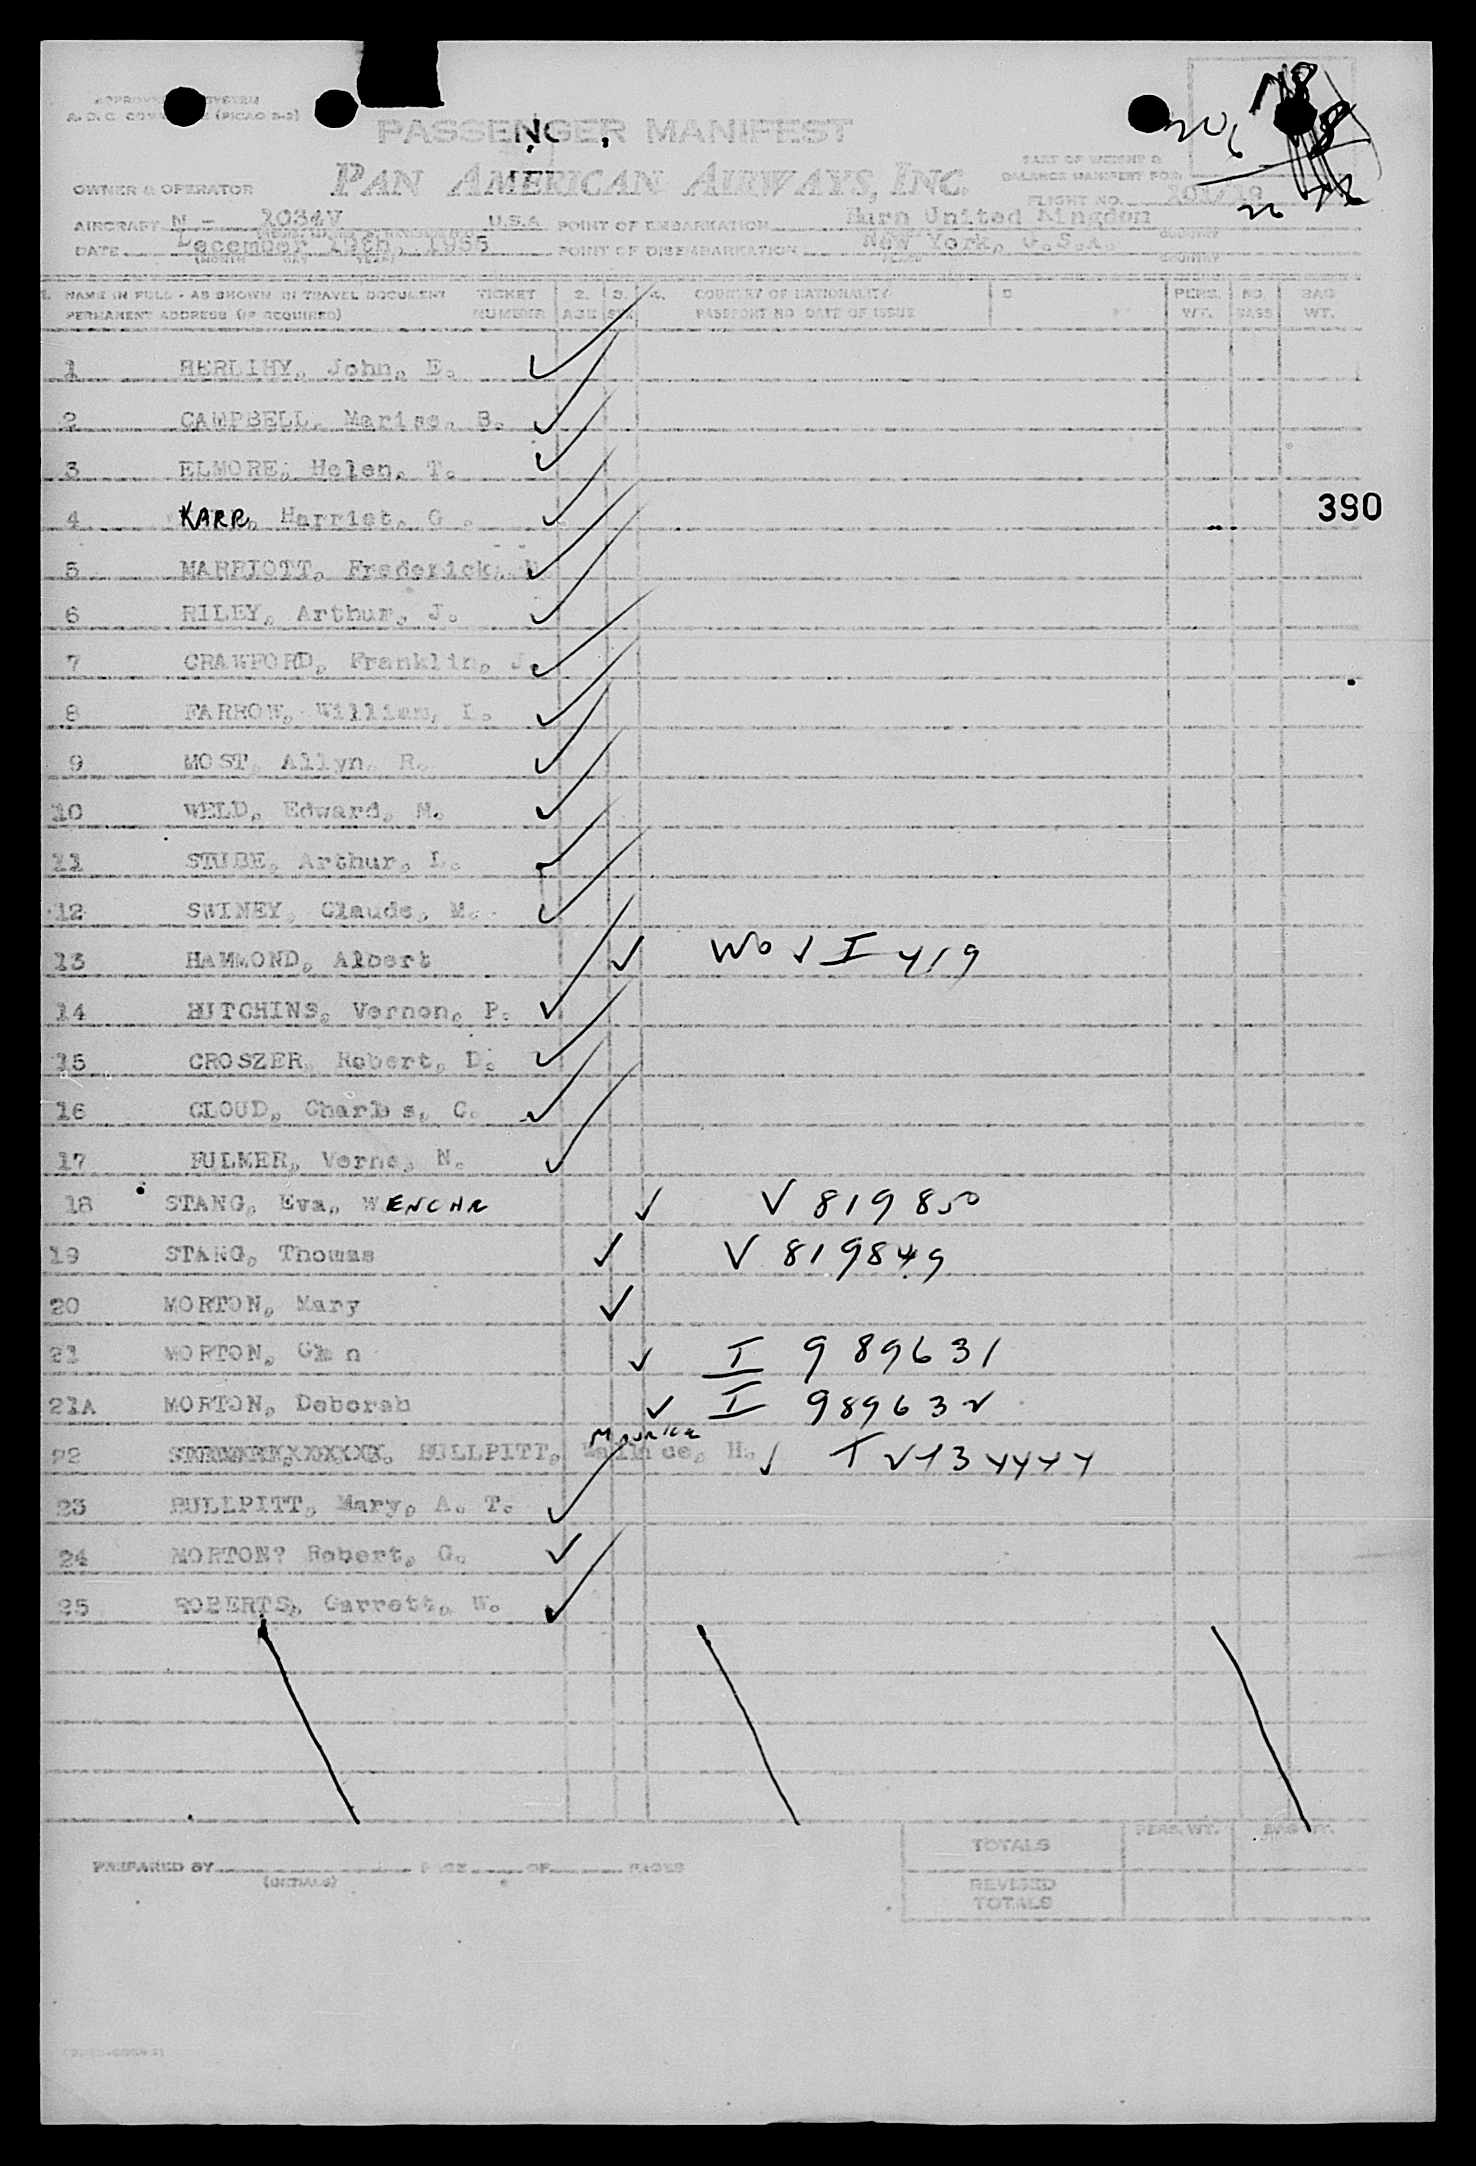 A. O. C. (PICAO 2-2)
PASSENGER MANIFEST
PAN AMERICAN AIRWAYS, INC.
PART OF WEIGHT &
BALANCE MANIFEST FOR
FLIGHT NO. 101/19
OWNER & OPERATOR
AIRCRAFT N - 1034V U.S.A POINT OF EMBARKATION Hurn United Kingdom
DATE December 19th, 1955 POINT OF DISEMBARKATION New York, U.S.A.
1. NAME IN FULL - AS SHOWN IN TRAVEL DOCUMENT TICKET 2. 3. 4. COUNTRY OF NATIONALITY 5 PERS. NO. BAG
PERMANENT ADDRESS (IF REQUIRED) NUMBER AGE SEX PASSPORT NO. DATE OF ISSUE WT. BAGS WT.
1 HERLIHY, John, E. ✓
2 CAMPBELL, Marise, B. ✓
3 ELMORE, Helen, T. ✓
4 KARR, Harriet, G. ✓ 390
5 MARRIOTT, Frederick, ✓
6 RILEY, Arthur, J. ✓
7 CRAWFORD, Franklin, J. ✓
8 FARROW, William, L. ✓
9 MOST, Allyn, R. ✓
10 WELD, Edward, M. ✓
11 STUBE, Arthur, L. ✓
12 SWINEY, Claude, M. ✓
13 HAMMOND, Albert ✓
14 HUTCHINS, Vernon, P. ✓
15 CROSZER, Robert, D. ✓
16 CLOUD, Charles, C. ✓
17 FULMER, Verne, N. ✓
18 STANG, Eva, WENCHE ✓ V 819850
19 STANG, Thomas ✓ V 819849
20 MORTON, Mary ✓
21 MORTON, Glen ✓ I 989631
21A MORTON, Deborah ✓ I 989632
MAURICE
22 BULLPITT, H. ✓
23 BULLPITT, Mary, A. T. ✓
24 MORTON? Robert, G. ✓
25 ROBERTS, Garrett, W. ✓
TOTALS PERS. WT. BAG WT.
PREPARED BY PAGE OF PAGES
(INITIALS)
REVISED
TOTALS